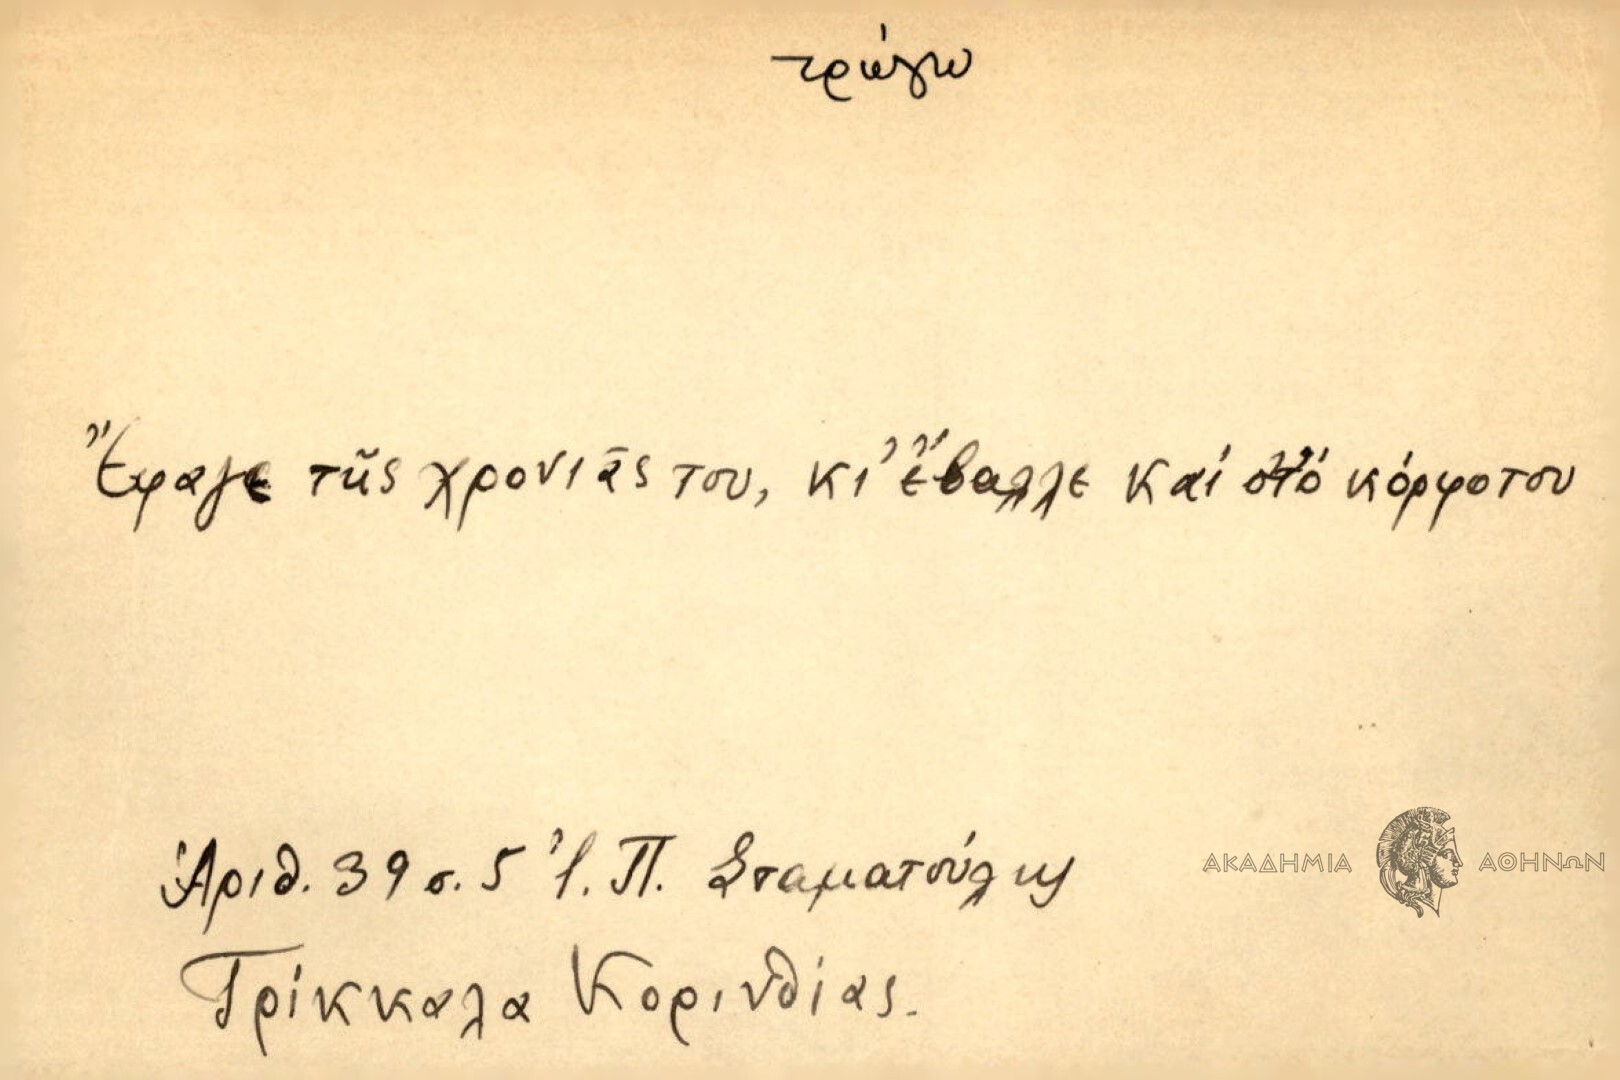 τρώγω
Ἔφαγε τῆς χρονιᾶς του, κι' ἔβαλλε καί στό κόρφο του
Ἀριθ. 39 σ. 5 Ἰ. Π. Σταματούλης
Τρίκκαλα Κορινθίας.
ΑΚΑΔΗΜΙΑ ΑΘΗΝΩΝ